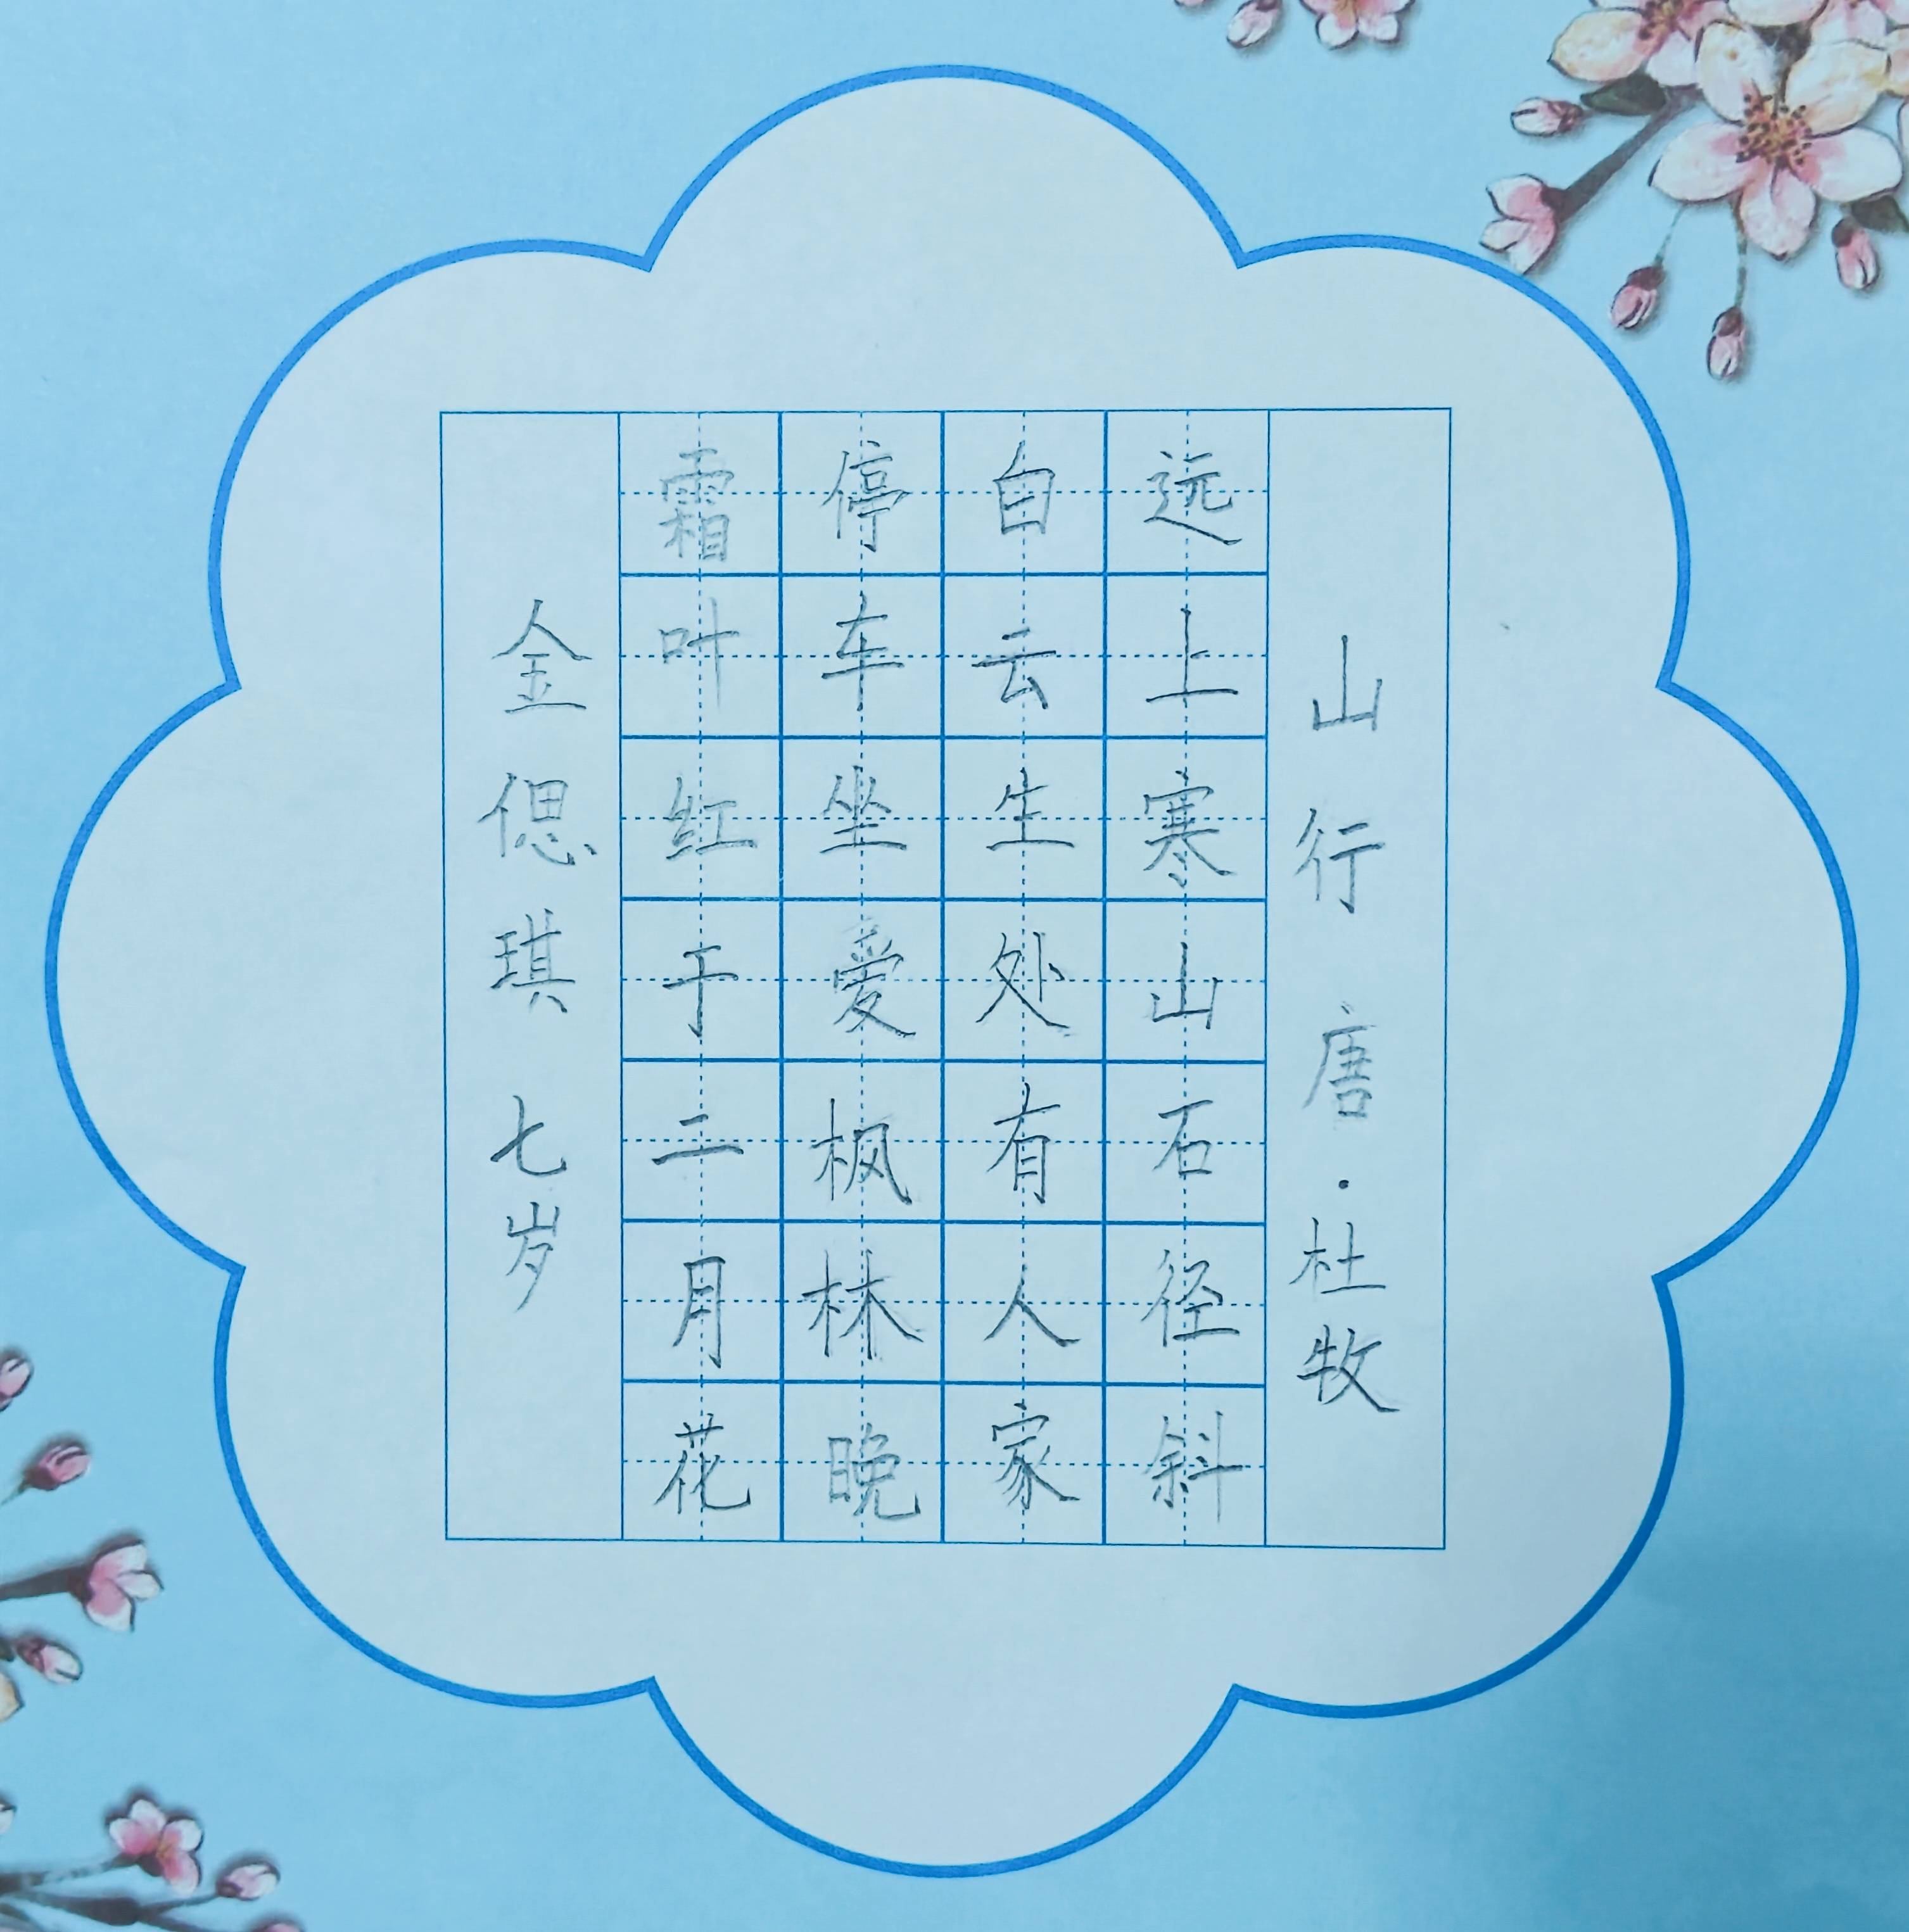 山行 唐·杜牧
远上寒山石径斜
白云生处有人家
停车坐爱枫林晚
霜叶红于二月花
金偲琪 七岁